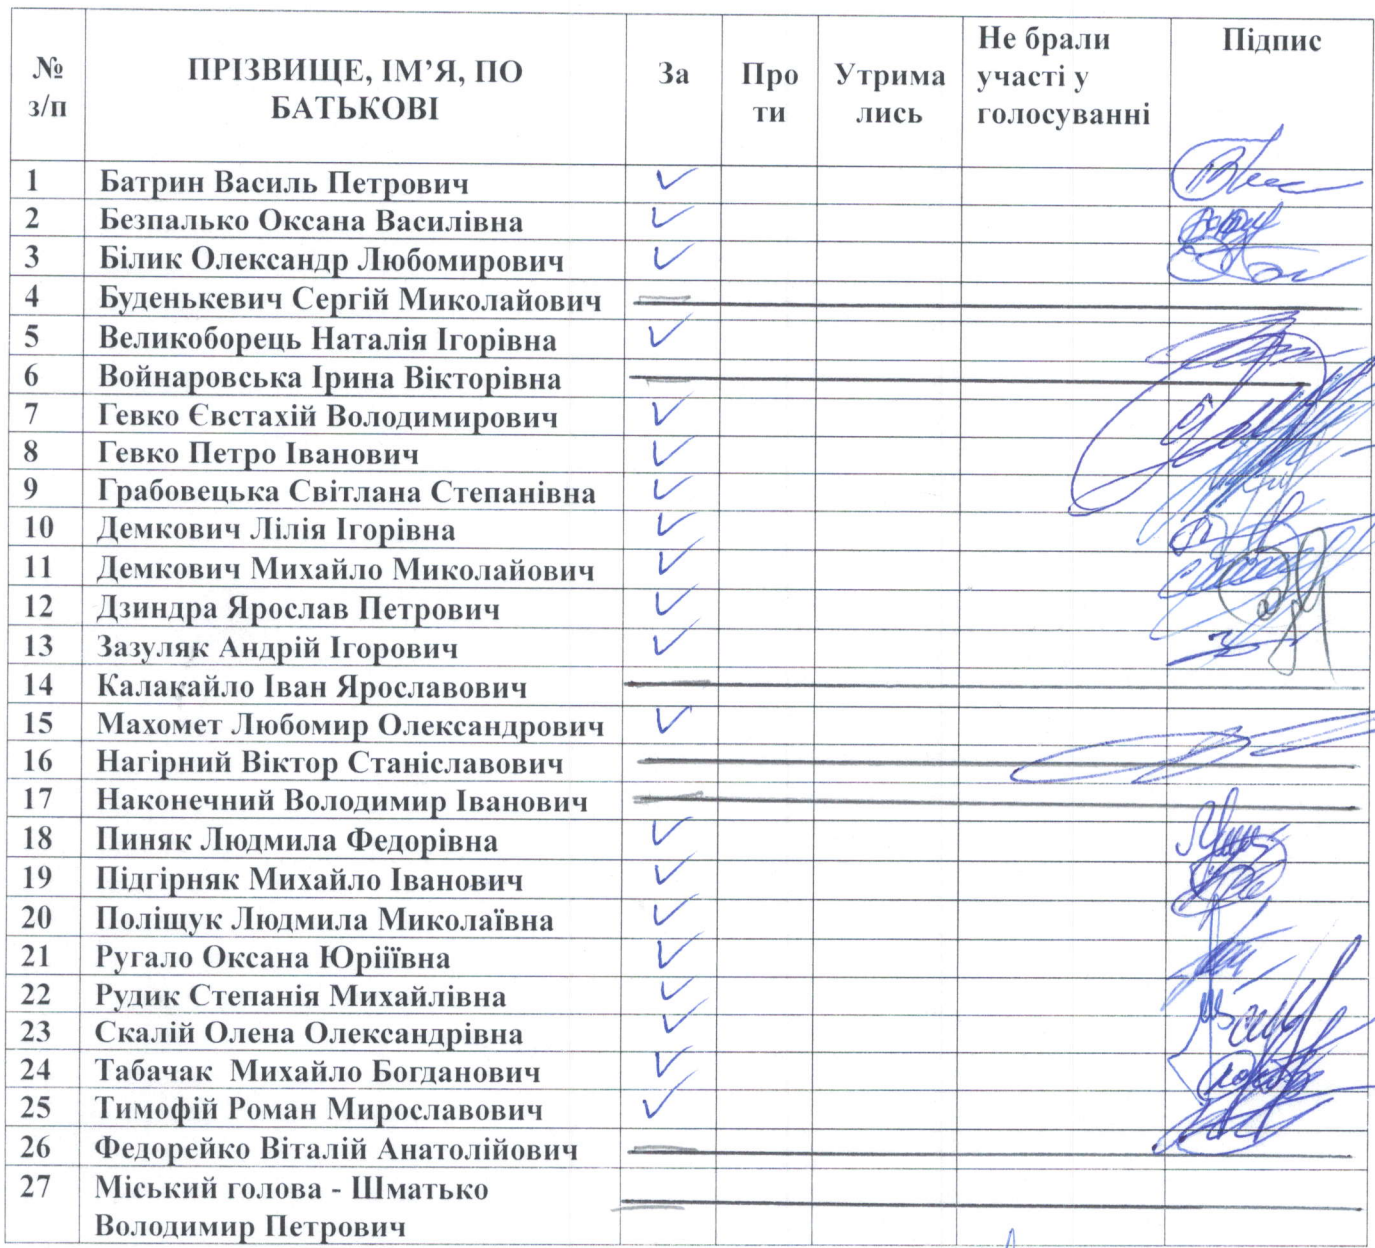 № з/п
ПРІЗВИЩЕ, ІМ’Я, ПО БАТЬКОВІ
За
Про ти
Утрима лись
Не брали участі у голосуванні
Підпис
1 Батрин Василь Петрович ✓
2 Безпалько Оксана Василівна ✓
3 Білик Олександр Любомирович ✓
4 Буденькевич Сергій Миколайович
5 Великоборець Наталія Ігорівна ✓
6 Войнаровська Ірина Вікторівна
7 Гевко Євстахій Володимирович ✓
8 Гевко Петро Іванович ✓
9 Грабовецька Світлана Степанівна ✓
10 Демкович Лілія Ігорівна ✓
11 Демкович Михайло Миколайович ✓
12 Дзиндра Ярослав Петрович ✓
13 Зазуляк Андрій Ігорович ✓
14 Калакайло Іван Ярославович
15 Махомет Любомир Олександрович ✓
16 Нагірний Віктор Станіславович
17 Наконечний Володимир Іванович
18 Пиняк Людмила Федорівна ✓
19 Підгірняк Михайло Іванович ✓
20 Поліщук Людмила Миколаївна ✓
21 Ругало Оксана Юріїївна ✓
22 Рудик Степанія Михайлівна ✓
23 Скалій Олена Олександрівна ✓
24 Табачак Михайло Богданович ✓
25 Тимофій Роман Мирославович ✓
26 Федорейко Віталій Анатолійович
27 Міський голова - Шматько
Володимир Петрович